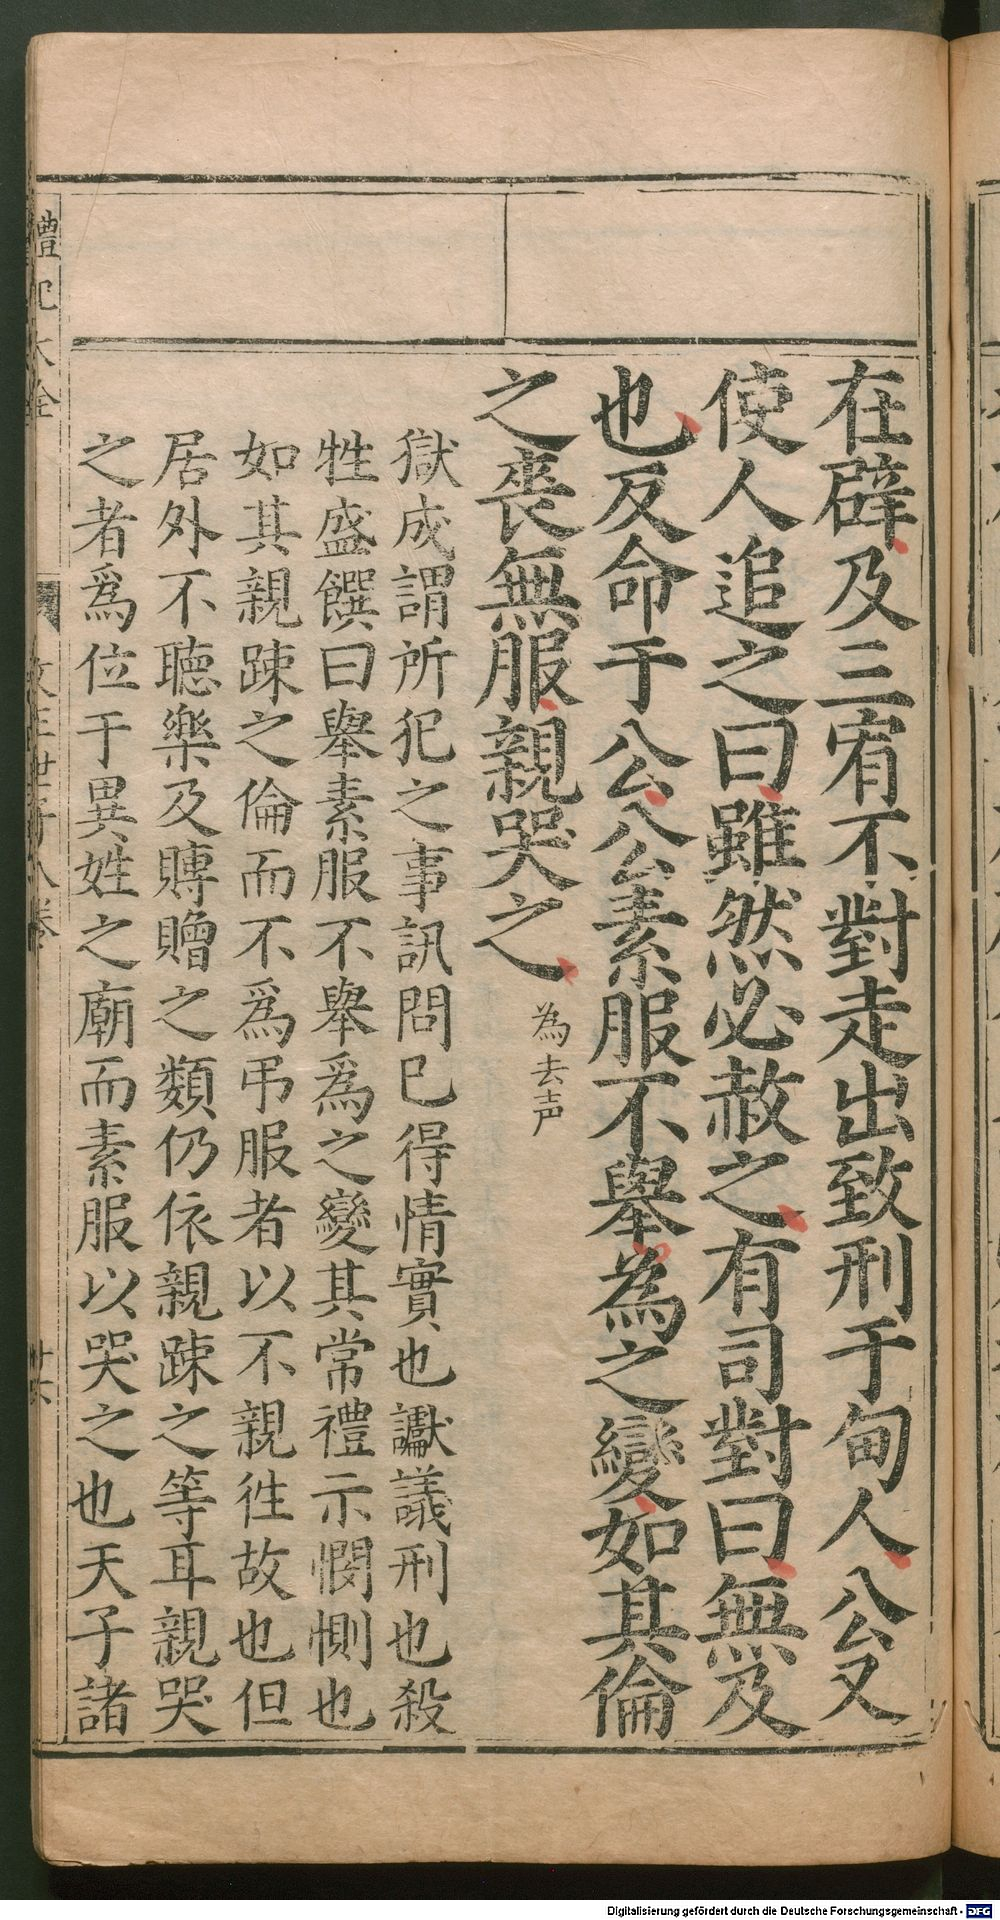 在辟及三宥不對走出致刑于甸人公又
使人追之曰雖然必赦之有司對曰無及
也反命于公公素服不舉為之變如其倫
之喪無服親哭之
為去声
獄成謂所犯之事訊問已得情實也讞議刑也殺
牲盛饌曰舉素服不舉爲之變其常禮示憫惻也
如其親踈之倫而不爲弔服者以不親徃故也但
居外不聴樂及賻贈之類仍依親踈之等耳親哭
之者爲位于異姓之廟而素服以哭之也天子諸
禮記大全
文王世子八卷
廿六
Digitalisierung gefördert durch die Deutsche Forschungsgemeinschaft - DFG